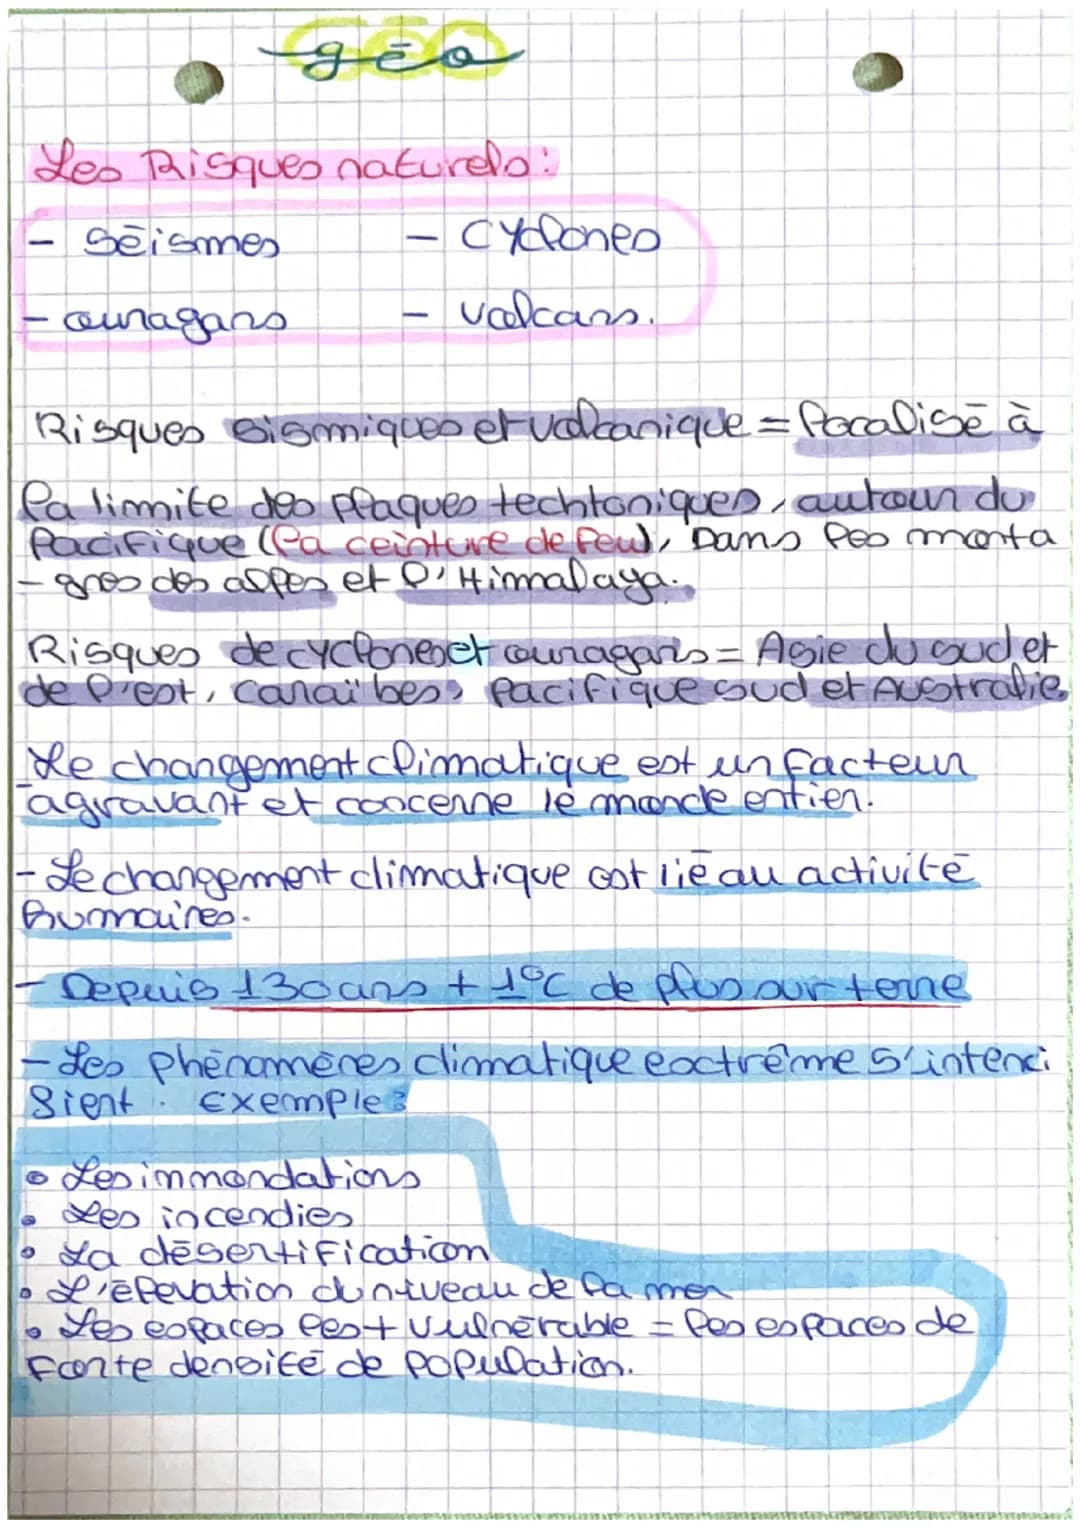 géo
Les Risques naturels:
- séismes - cyclones
- ouragans - volcans.
Risques sismiques et volcanique = localisé à
la limite des plaques techtoniques, autour du
Pacifique (la ceinture de feu), Dans les monta
-gnes des alpes et l'Himmalaya.
Risques de cyclones et ouragans = Asie du sud et
de l'est, caraïbes, pacifique sud et Australie
Le changement climatique est un facteur
agravant et concerne le monde entier.
- Le changement climatique est lié au activité
humaines.
- Depuis 130 ans + 1°C de plus sur terre
- Les phénomènes climatique extrême s'intenci
sient. Exemple:
• Les innondations
• Les incendies
• La désertification
• L'élevation du niveau de la mer
• Les espaces les + vulnérable = les espaces de
forte densité de population.